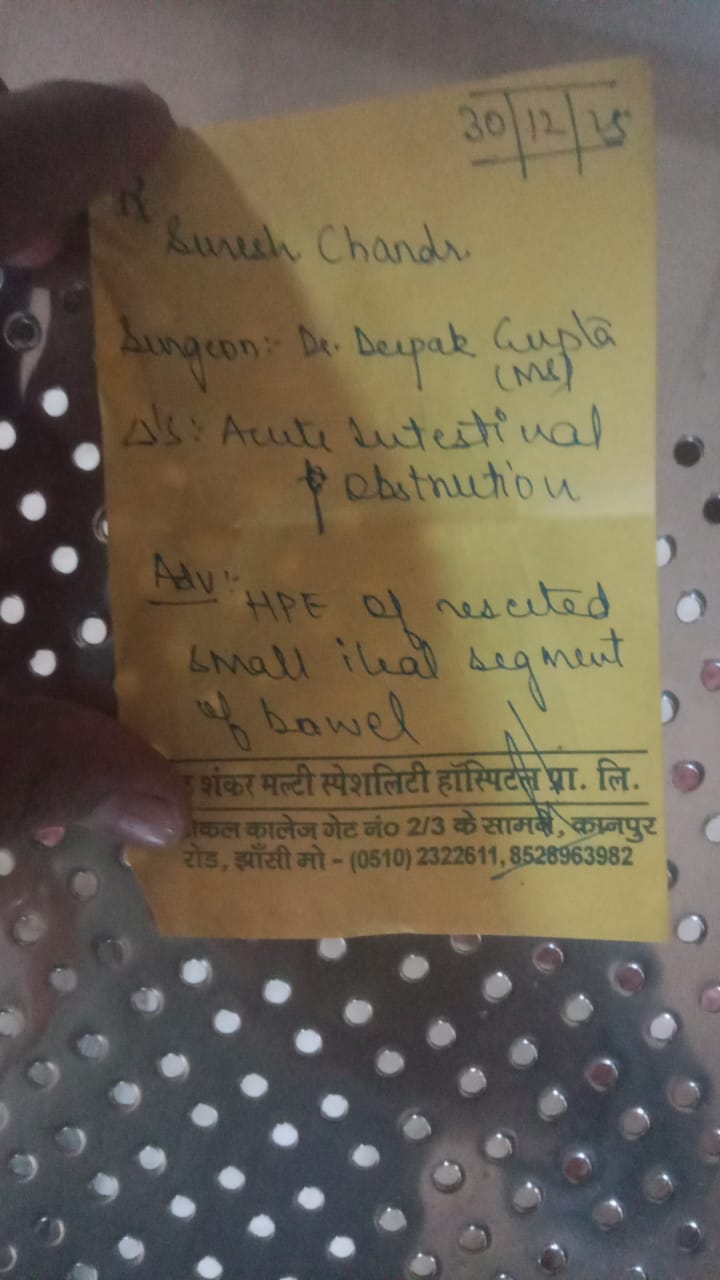 30/12/25
Suresh Chandr.
Surgeon:- Dr. Deepak Gupta
(MS)
Δ'S:- Acute Intestinal
Obstrution
Adv:-
HPE of resceted
small ileal segment
of bowel
शंकर मल्टी स्पेशलिटी हॉस्पिटल प्रा. लि.
कालेज गेट नं० 2/3 के सामने, कानपुर
रोड, झाँसी मो - (0510) 2322611, 8528963982